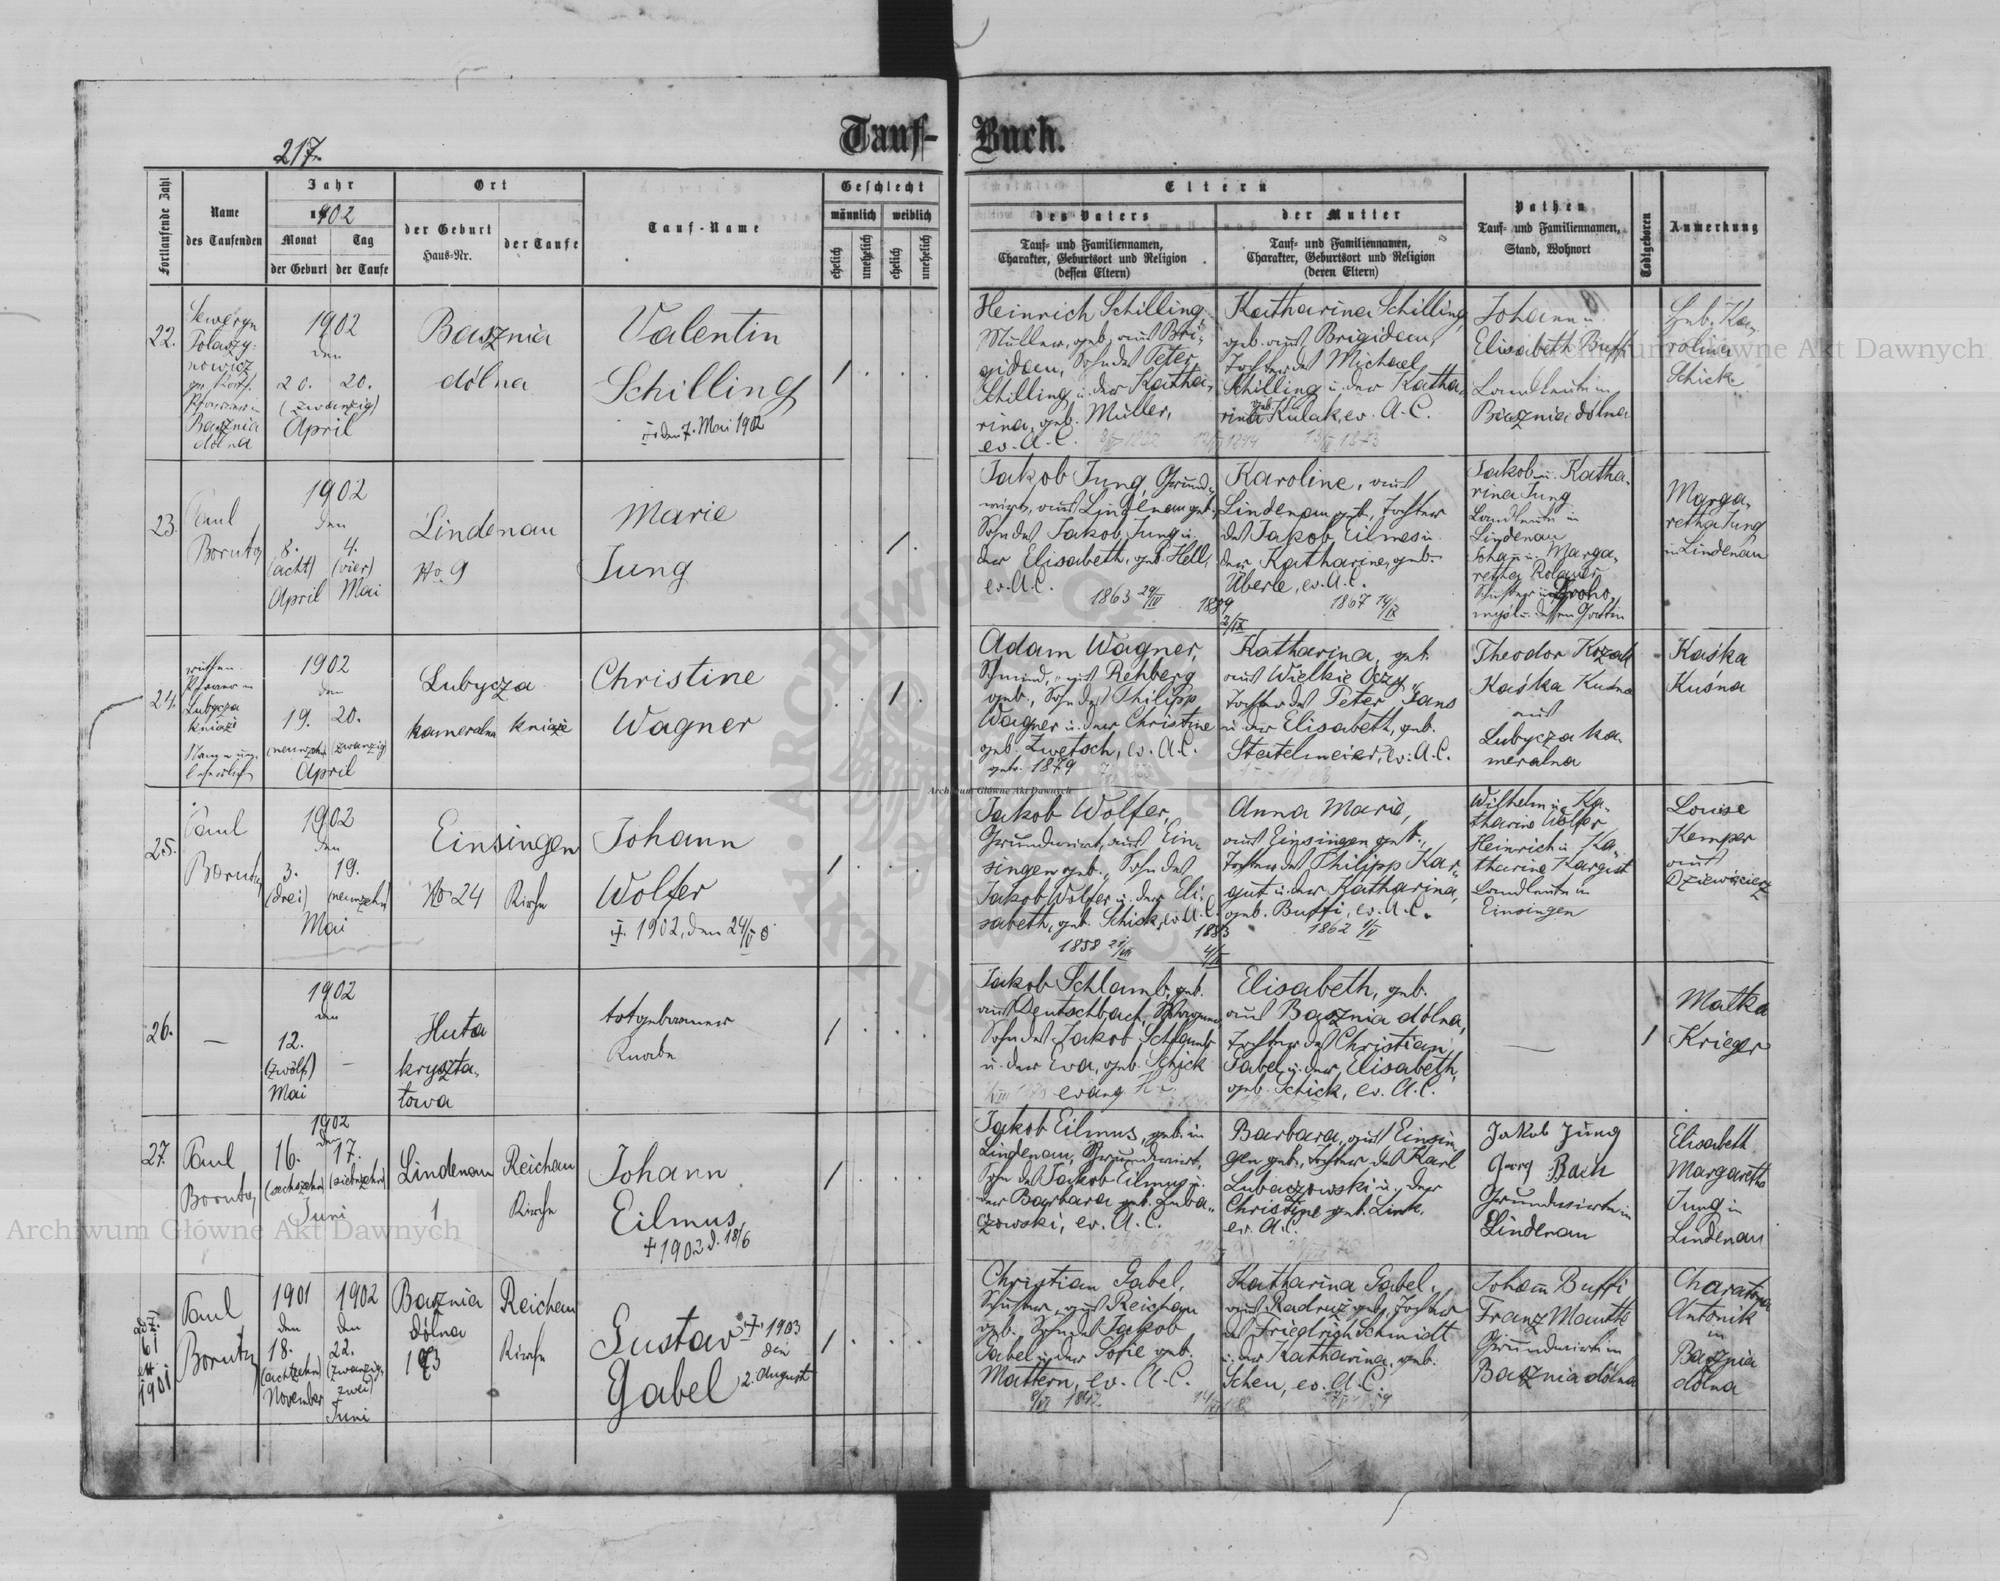 217.
Tauf-Buch.
Fortlaufende Zahl
Name
des Taufenden
Jahr
1902
Monat
Tag
der Geburt
der Taufe
Ort
der Geburt
Haus-Nr.
der Taufe
Tauf-Name
Geschlecht
männlich
weiblich
ehelich
unehelich
ehelich
unehelich
Eltern
des Vaters
Tauf- und Familiennamen,
Charakter, Geburtsort und Religion
(dessen Eltern)
der Mutter
Tauf- und Familiennamen,
Charakter, Geburtsort und Religion
(deren Eltern)
Pathen
Tauf- und Familiennamen,
Stand, Wohnort
Todtgeboren
Anmerkung
22.
Pfarrer in
Basznia
dolna
1902
den
20. 20.
(zwanzig)
April
Basznia
dólna
Valentin
Schilling
den 7. Mai 1902
Heinrich Schilling
Müller, geb. aus Bri-
gidau, Sohn des Peter
Schilling u. der Katha-
rina, geb. Müller,
ev. A.C.
Katharina Schilling,
geb. aus Brigidau,
Tochter des Michael
Schilling u. der Katha-
rina geb. Kulak, ev. A.C.
Johann u.
Elisabeth Buffi
Landleute in
Basznia dólna
Geb. Ka-
rolina
Schick
23.
Paul
Borutzy
1902
den
8. 4.
(acht) (vier)
April Mai
Lindenau
No. 9
Marie
Jung
Jakob Jung, Grund-
wirt, aus Lindenau geb.,
Sohn des Jakob Jung u.
der Elisabeth, geb. Hell,
ev. A.C.
1863 29/IV
1889
2/IX
Karoline, aus
Lindenau geb., Tochter
des Jakob Eilmes u.
der Katharine, geb.
Überle, ev. A.C.
1867 14/IX
Jakob u. Katha-
rina Jung
Landleute in
Lindenau
Johann u. Marga-
retha
Marga-
retha Jung
in Lindenau
24.
ruthen.
Pfarrer in
Lubycza
kniazie
Name un-
leserlich
1902
den
19. 20.
(neunzehn) (zwanzig)
April
Lubycza
kameralna kniazie
Christine
Wagner
Adam Wagner,
Schmied, aus Rehberg
geb., Sohn des Philipp
Wagner u. der Christine
geb. Zwetsch, ev. A.C.
geb. 1879
Katharina, geb.
aus Wielkie Oczy,
Tochter des Peter Jans
u. der Elisabeth, geb.
Steitelmeier, ev. A.C.
Theodor Kozak
Kaśka Kuśna
aus
Lubycza ka-
meralna
Kaśka
Kuśna
25.
Paul
Borutzy
1902
den
3. 19.
(drei) (neunzehn)
Mai
Einsingen
No 24 Kirche
Johann
Wolfer
Jakob Wolfer,
Grundwirt, aus Ein-
singen geb., Sohn des
Jakob Wolfer u. der Eli-
sabeth, geb. Schick, ev. A.C.
1858
1883
Anna Marie,
aus Einsingen geb.,
Tochter des Philipp Kar-
gut u. der Katharina,
geb. Buffi, ev. A.C.
1862
Wilhelm u. Ka-
tharine Wolfer
Heinrich u. Ka-
tharine Kargut
Landleute in
Einsingen
Louise
Kemper
aus
Dziewięcierz
26.
—
1902
den
12.
(zwölf) —
Mai
Huta
kryszta-
łowa
totgeborener
Knabe
Jakob Schlamb, geb.
aus Deutschbach,
Sohn des Jakob Schlamb
u. der Eva, geb. Schick
evang. H.C.
Elisabeth, geb.
aus Basznia dólna,
Tochter des Christian
Gabel u. der Elisabeth,
geb. Schick, ev. A.C.
—
Matka
Krieger
27.
Paul
Borutzy
1902
den
16. 17.
(sechszehn) (siebzehn)
Juni
Lindenau
1
Reichau
Kirche
Johann
Eilmus,
+ 1902 d. 18/6
Jakob Eilmus, geb. in
Lindenau, Grundwirt,
Sohn des Jakob Eilmus u.
der Barbara geb. Luba-
czowski, ev. A.C.
Barbara, aus Einsin-
gen geb., Tochter des Karl
Lubaczowski u. der
Christine geb. Link,
ev. A.C.
Jakob Jung
Georg Bach
Grundwirte in
Lindenau
Elisabeth
Margaretha
Jung in
Lindenau
61
1901
Paul
Borutzy
1901 1902
den den
18. 22.
(achtzehn) (zwanzig-
zwei)
November
Juni
Basznia
dólna
193
Reichau
Kirche
Gustav + 1903
den
Gabel 2. August
Christian Gabel,
Schuster, aus Reichau
geb., Sohn des Jakob
Gabel u. der Sofie geb.
Mattern, ev. A.C.
Katharina Gabel,
aus Radruż geb., Tochter
des Friedrich Schmidt
u. der Katharina, geb.
Scheu, ev. A.C.
Johann Buffi
Franz Mauth
Grundwirte in
Basznia dólna
Antonik
in
Basznia
dólna
Archiwum Główne Akt Dawnych
Archiwum Główne Akt Dawnych
Archiwum Główne Akt Dawnych